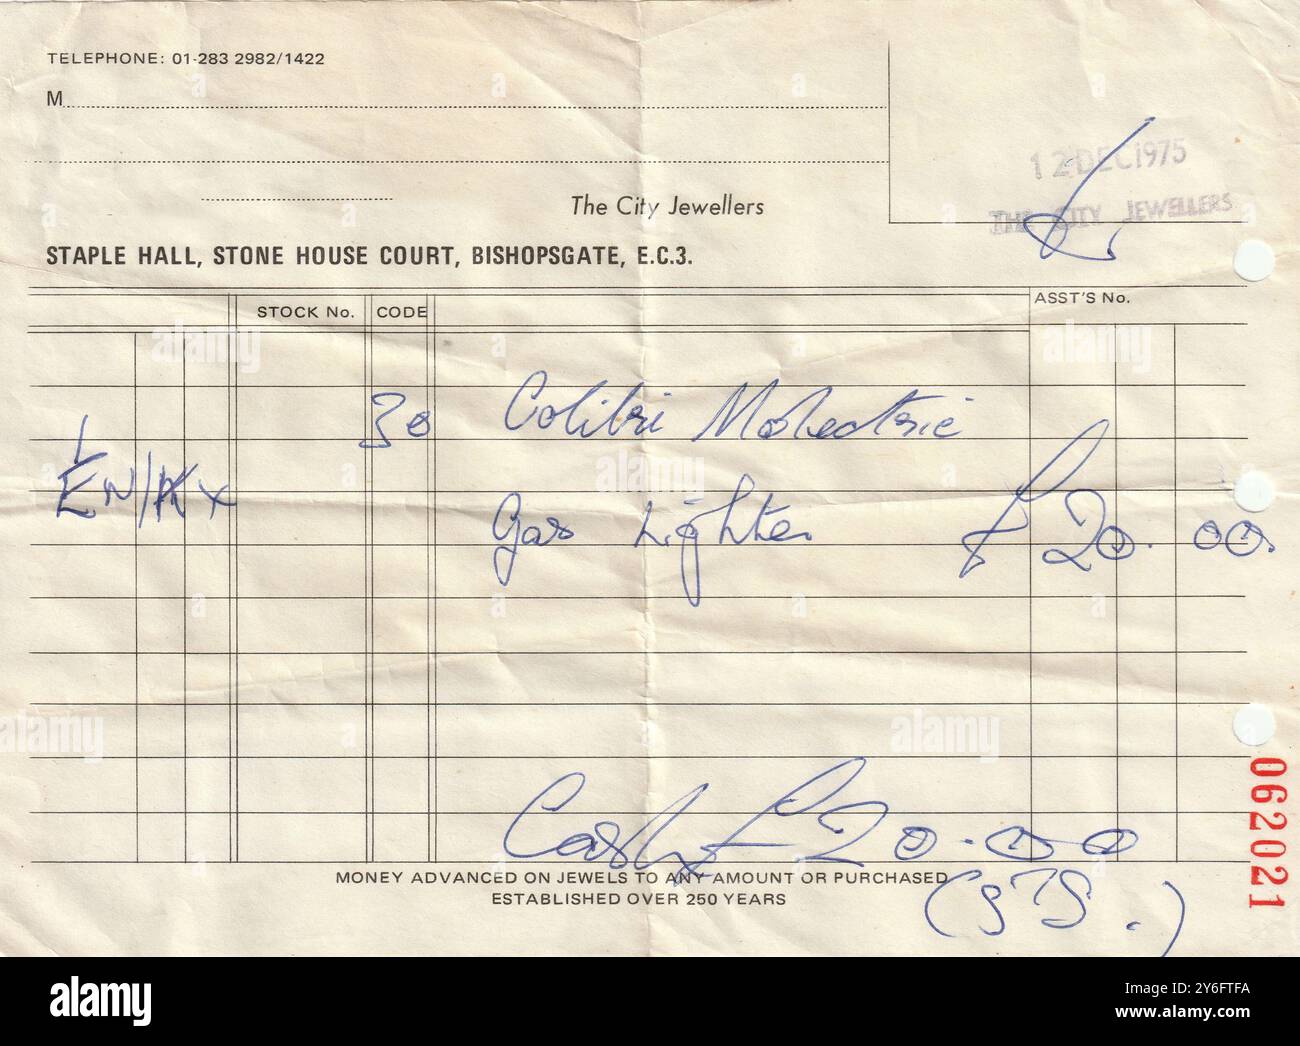 TELEPHONE: 01-283 2982/1422
M
12 DEC 1975
THE CITY JEWELLERS
The City Jewellers
STAPLE HALL, STONE HOUSE COURT, BISHOPSGATE, E.C.3.
STOCK No. CODE ASST'S No.
30 Colibri Molectric
Gas Lighter £20.00.
Cash £20.00
MONEY ADVANCED ON JEWELS TO ANY AMOUNT OR PURCHASED
ESTABLISHED OVER 250 YEARS
062021
alamy
Image ID: 2Y6FTFA
www.alamy.com